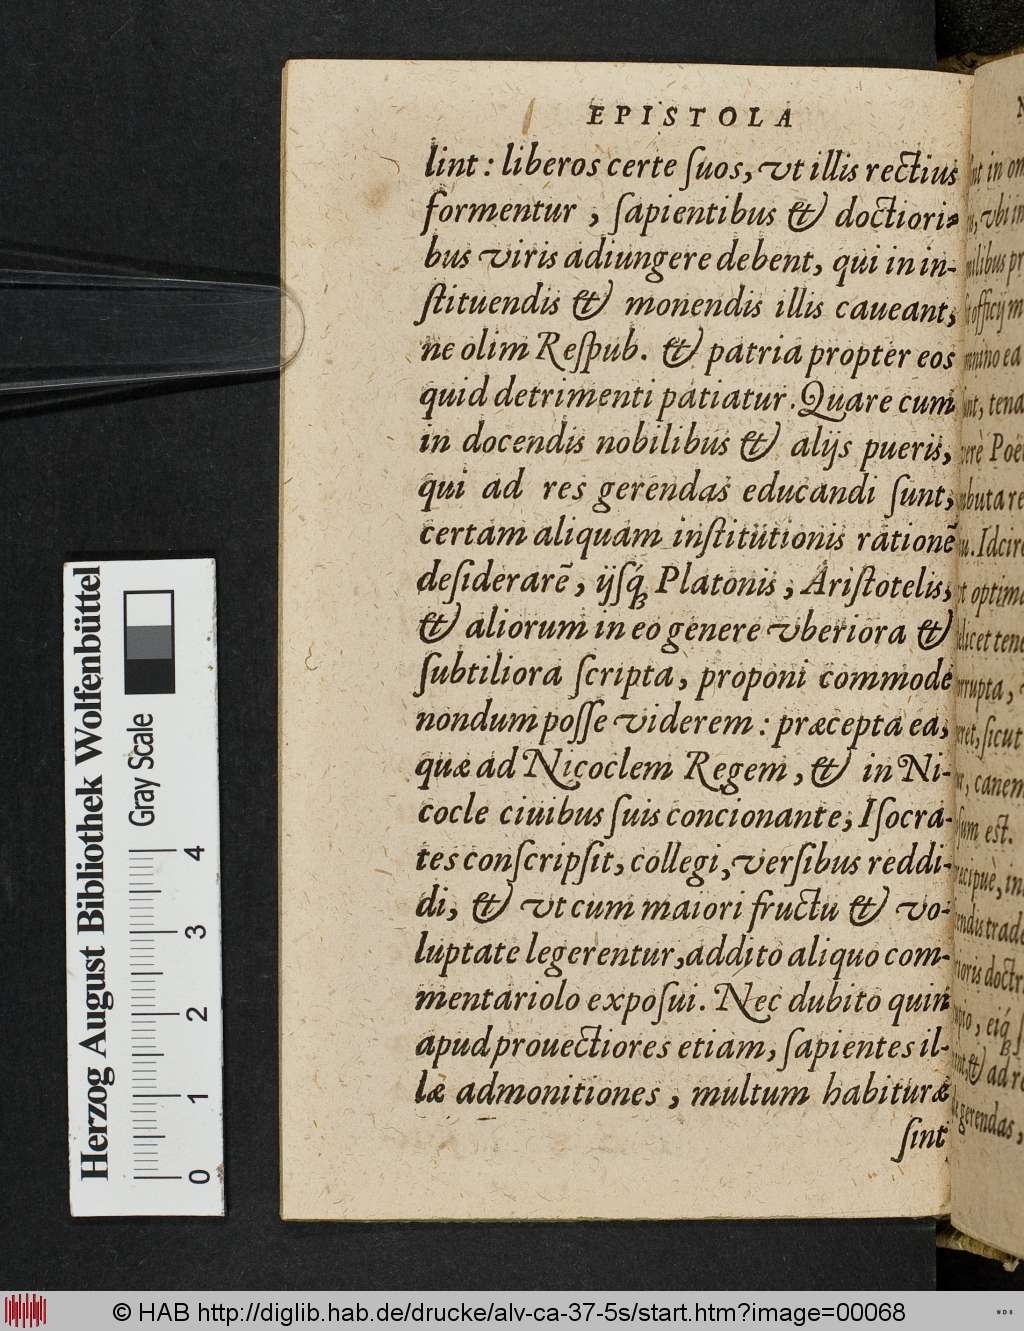 EPISTOLA
lint: liberos certe ſuos, vt illis rectius
formentur, ſapientibus & doctiori-
bus viris adiungere debent, qui in in-
ſtituendis & monendis illis caueant,
ne olim Reſpub. & patria propter eos
quid detrimenti patiatur. Quare cum
in docendis nobilibus & alijs pueris,
qui ad res gerendas educandi ſunt,
certam aliquam inſtitutionis rationē
deſiderarē, ijſq́ꝫ Platonis, Ariſtotelis,
& aliorum in eo genere vberiora &
ſubtiliora ſcripta, proponi commode
nondum poſſe viderem: præcepta ea,
quæ ad Nicoclem Regem, & in Ni-
cocle ciuibus ſuis concionante, Iſocra-
tes conſcripſit, collegi, verſibus reddi-
di, & vt cum maiori fructu & vo-
luptate legerentur, addito aliquo com-
mentariolo expoſui. Nec dubito quin
apud prouectiores etiam, ſapientes il-
læ admonitiones, multum habituræ
ſint
in
vbi
officij
ea
tena
Poë
. Idcirc
optima
licet
ſicut
canem
ſum eſt.
in
trad
& ad
gerendas,
Herzog August Bibliothek Wolfenbüttel
Gray Scale
0 1 2 3 4
© HAB http://diglib.hab.de/drucke/alv-ca-37-5s/start.htm?image=00068
WDB